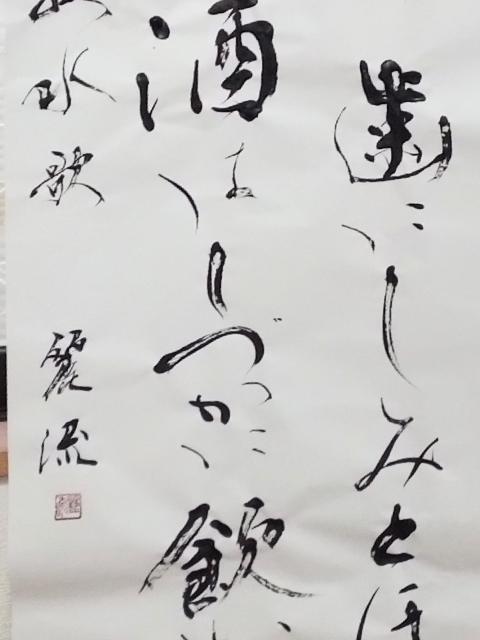 歯にしみとほ
酒はしづかに飲
水歌
麗流